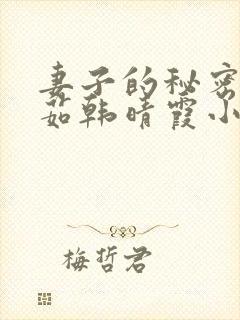 妻子的秘密
茹韩晴霞小
梅哲君